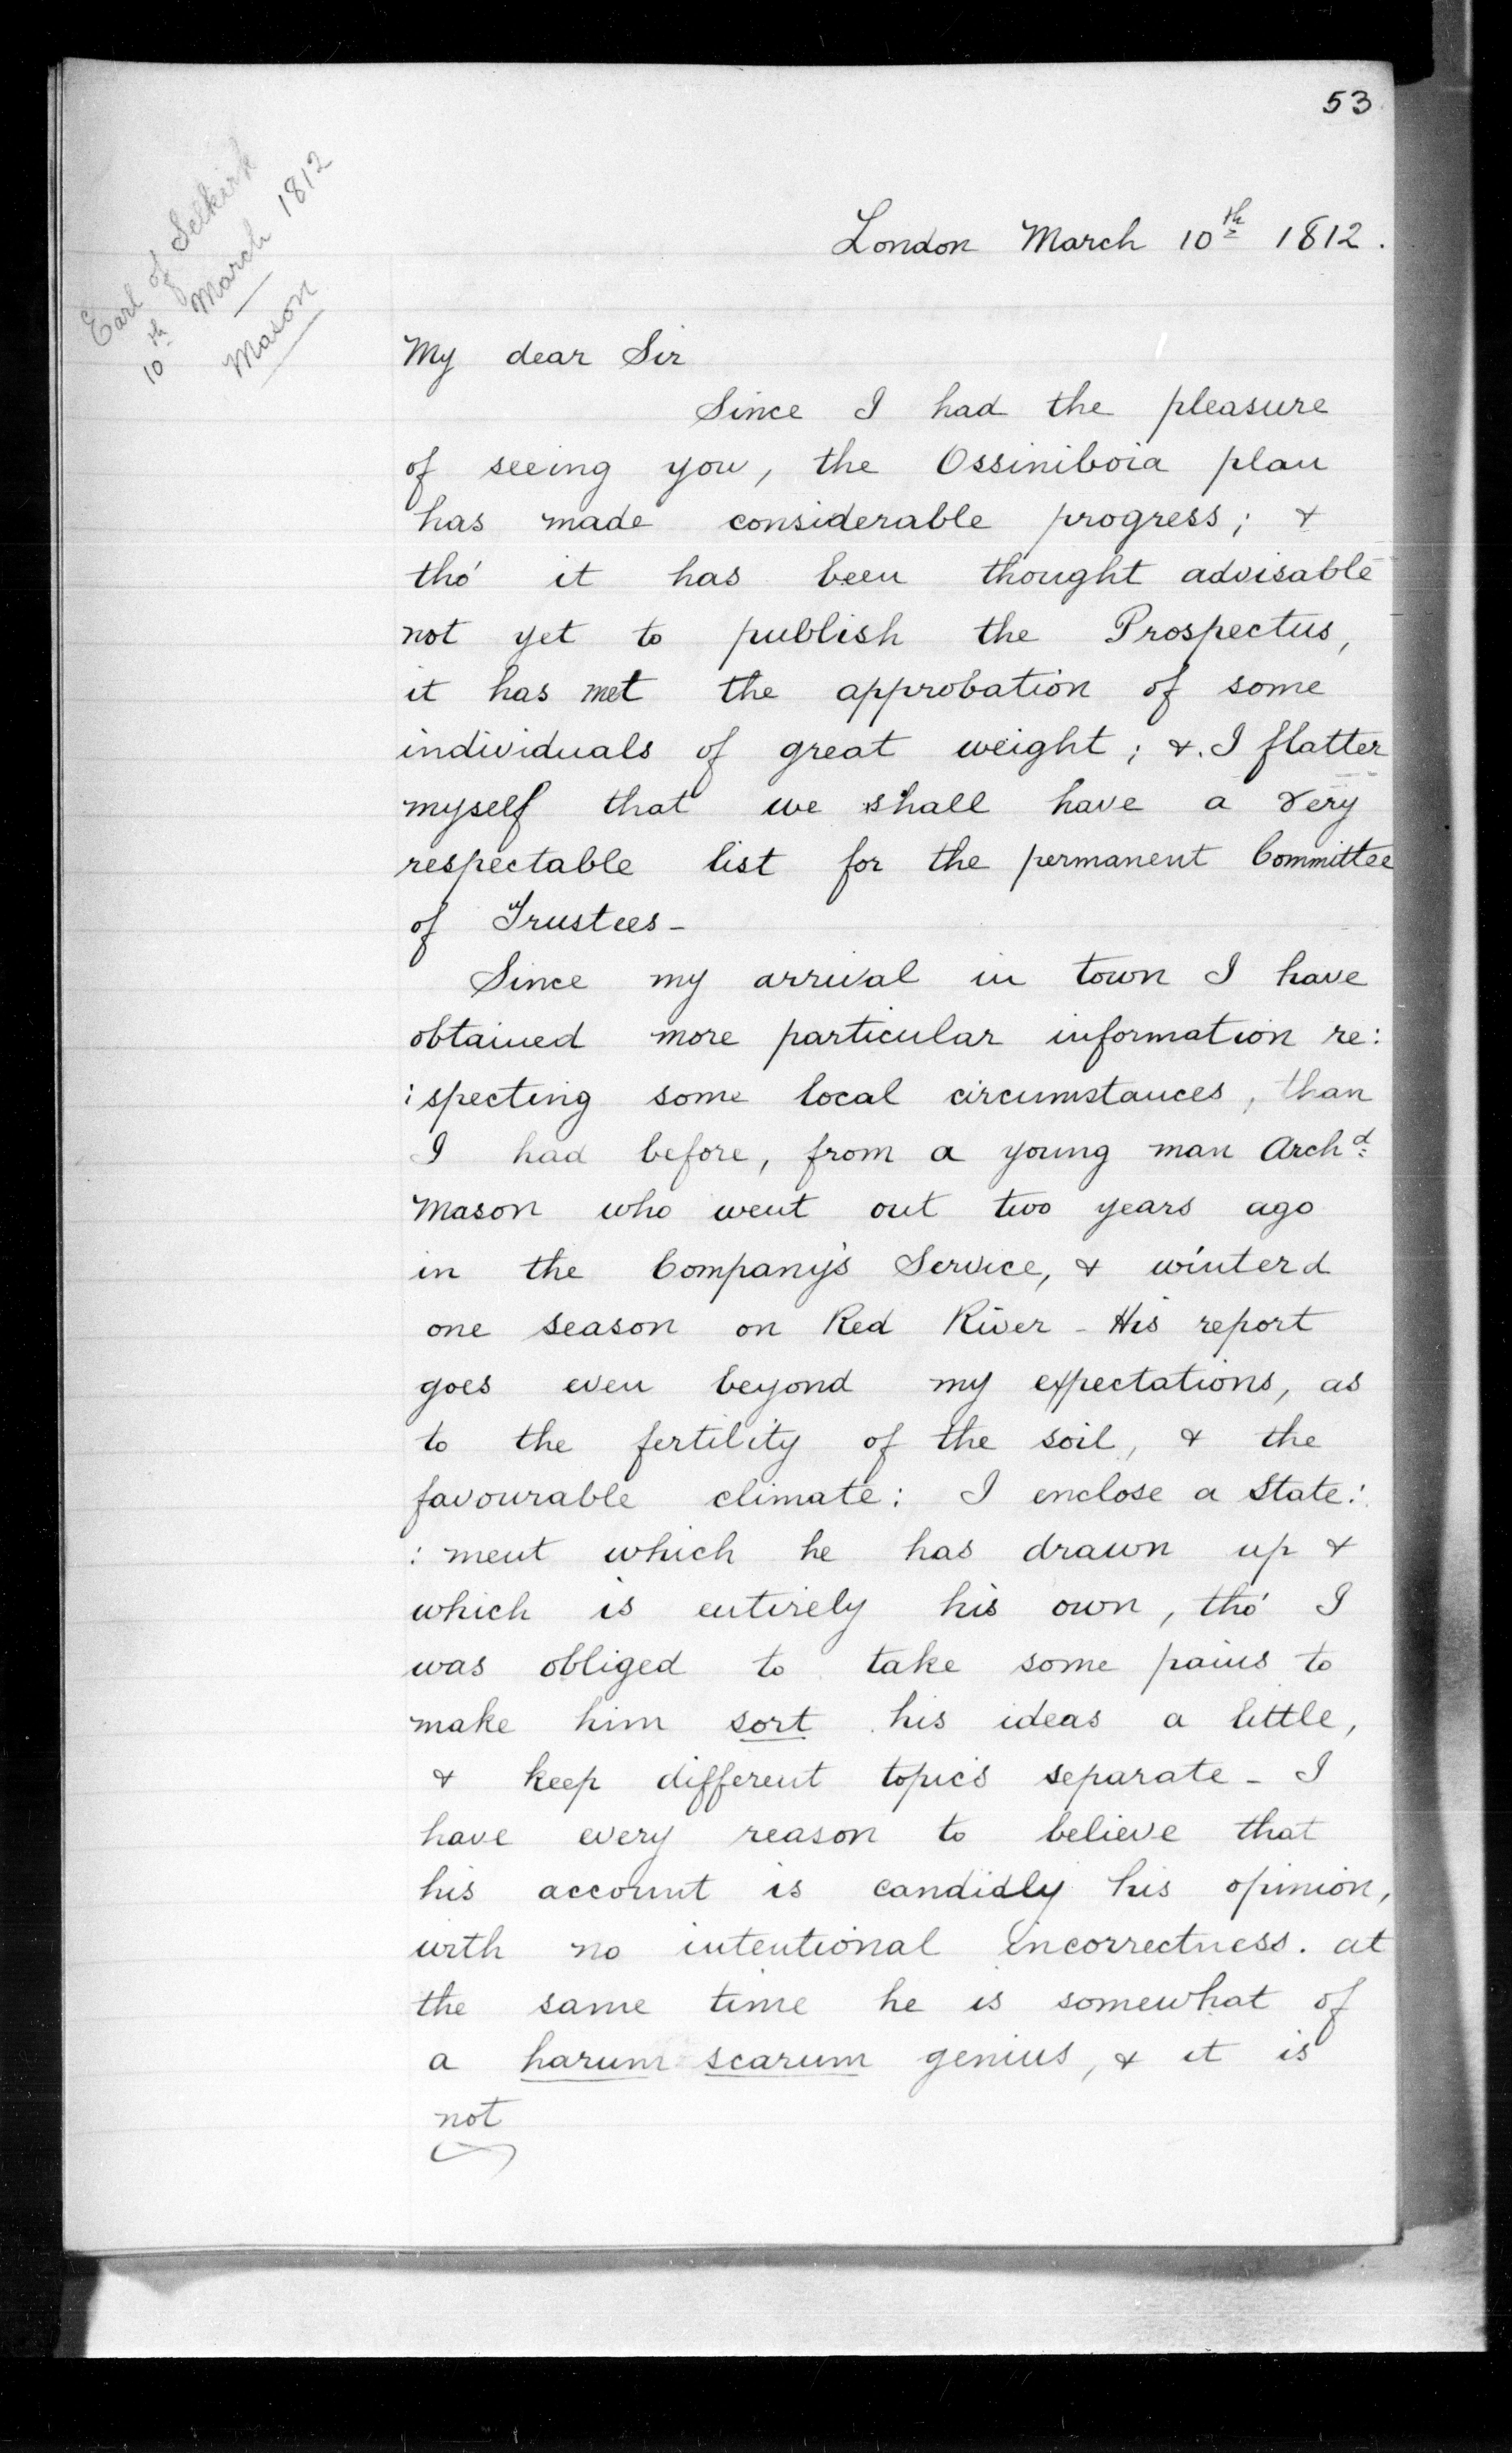 53
Earl of Selkirk
10th March 1812
Mason
London March 10th 1812.
My dear Sir
Since I had the pleasure
of seeing you, the Ossiniboia plan
has made considerable progress; &
tho' it has been thought advisable
not yet to publish the Prospectus,
it has met the approbation of some
individuals of great weight; &. I flatter
myself that we shall have a very
respectable list for the permanent Committee
of Trustees-
Since my arrival in town I have
obtained more particular information re:
:specting some local circumstances, than
I had before, from a young man Archd
Mason who went out two years ago
in the Company's Service, & winterd
one season on Red River - His report
goes even beyond my expectations, as
to the fertility of the soil, & the
favourable climate: I enclose a State:
:ment which he has drawn up &
which is entirely his own, tho' I
was obliged to take some pains to
make him sort his ideas a little,
& keep different topics separate - I
have every reason to believe that
his account is candidly his opinion,
with no intentional incorrectness. at
the same time he is somewhat of
a harum scarum genius, & it is
not